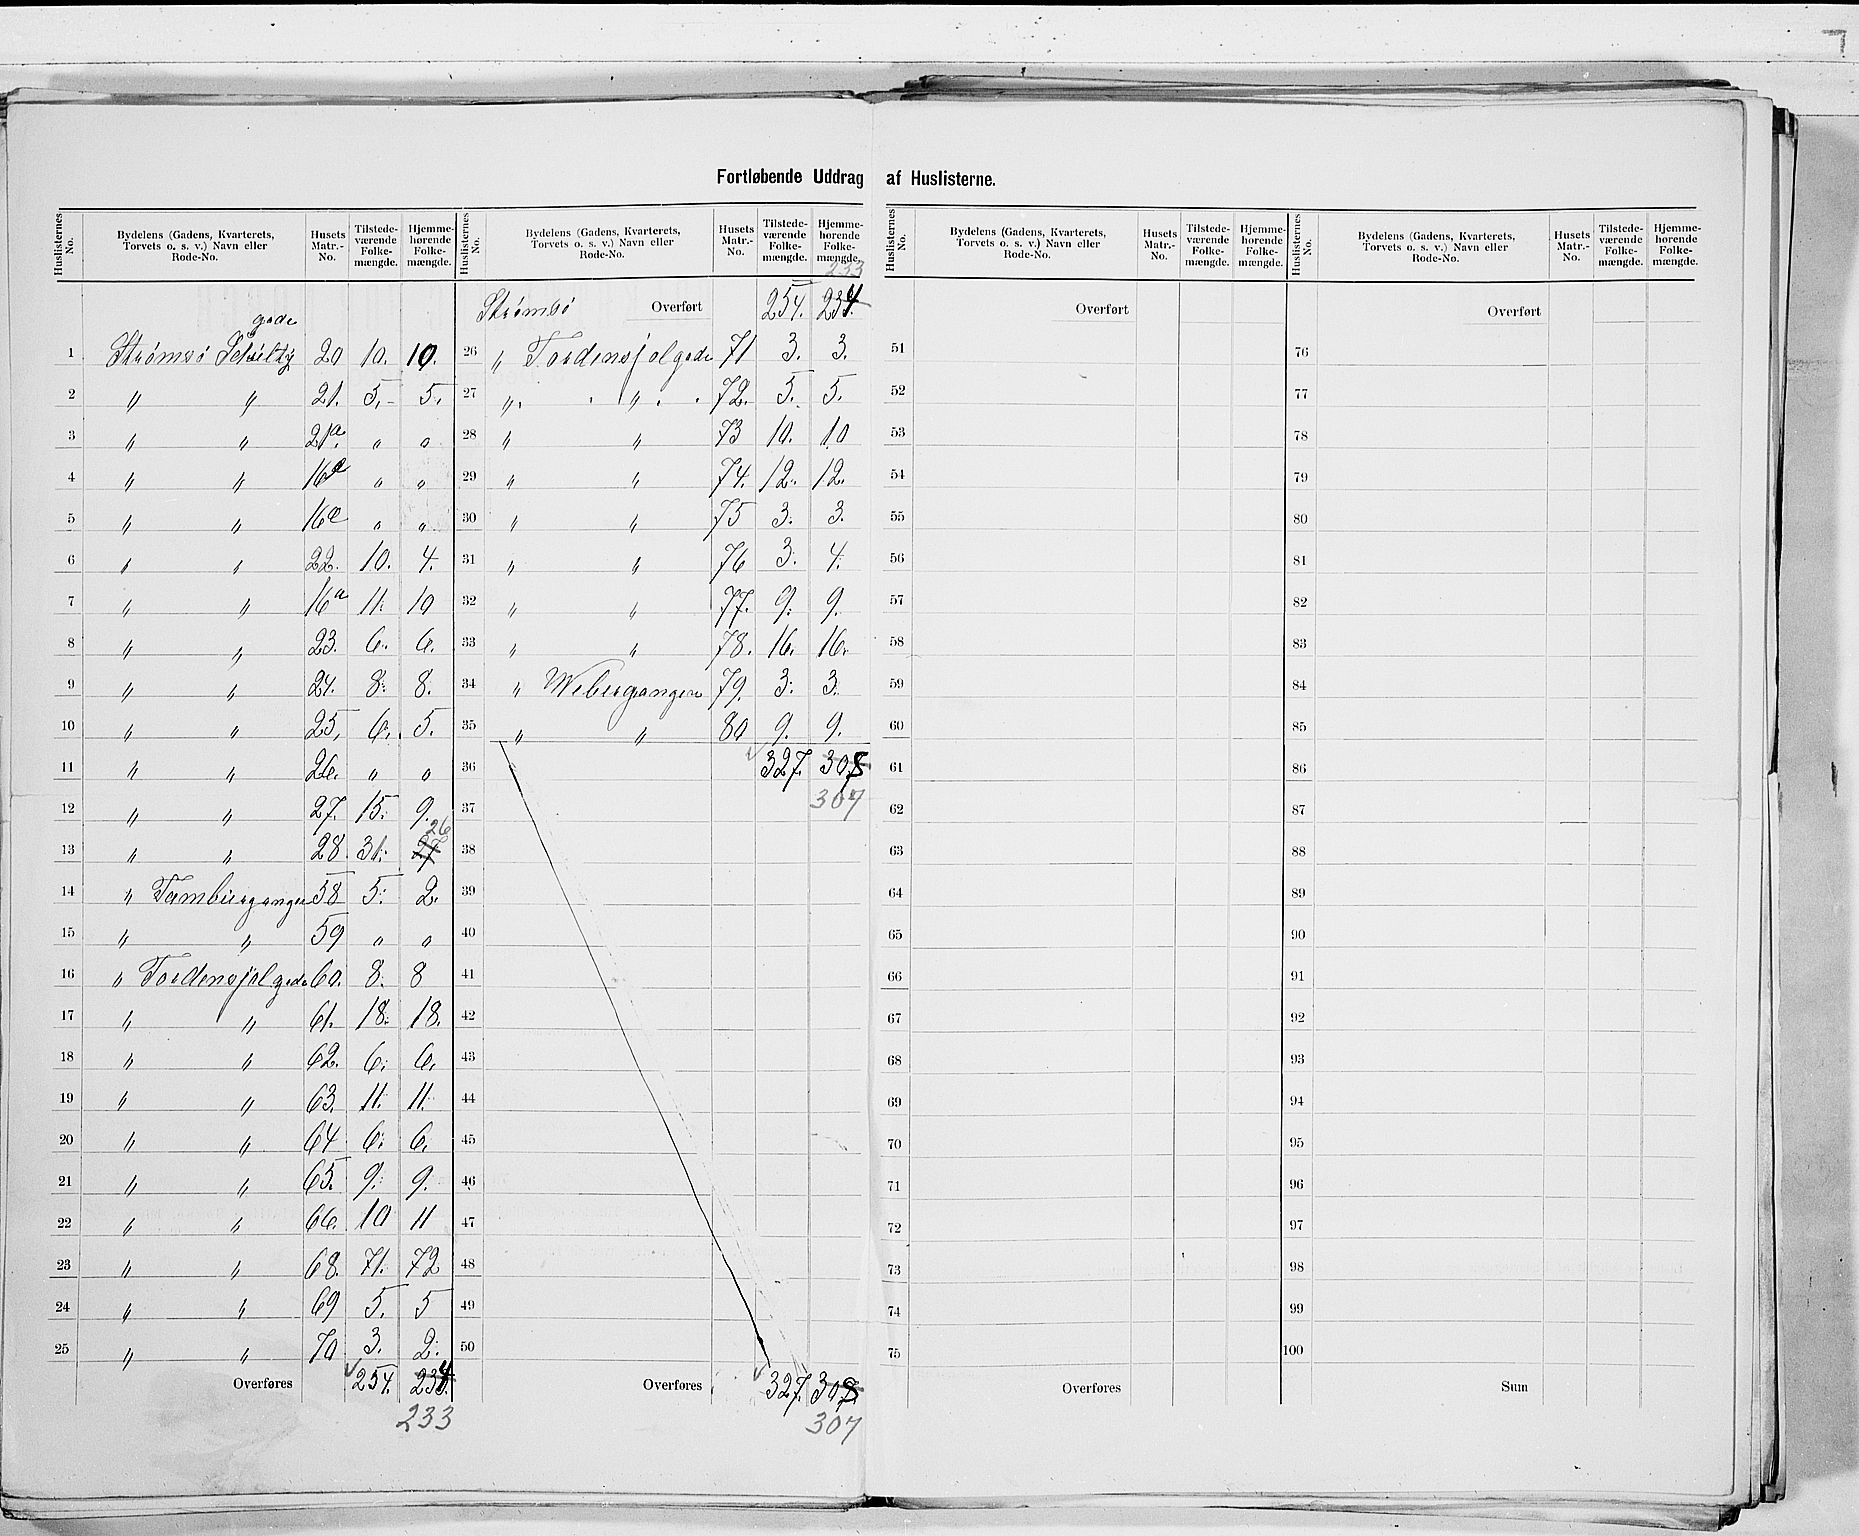 Fortløbende Uddrag af Huslisterne.
Huslisternes No. | Bydelens (Gadens, Kvarterets, Torvets o. s. v.) Navn eller Rode-No. | Husets Matr.-No. | Tilstedeværende Folkemængde. | Hjemmehørende Folkemængde.
gade
1 Strømsø 20 10. 10.
2 " " 21. 5. 5.
3 " " 21a. " "
4 " " "  "
5 " " "  "
6 " " 22. 10. 4.
7 " " 16a 11. 10
8 " " 23. 6. 6.
9 " " 24. 8. 8.
10 " " 25. 6. 5.
11 " " 26. " "
12 " " 27. 15. 9.
13 " " 28 31. 27 26
14 " Tamburgangen 58 5. 2.
15 " " 59 " "
16 " Tordensjolgade 60. 8. 8
17 " " 61. 18. 18.
18 " " 62. 6. 6.
19 " " 63. 11. 11.
20 " " 64 6. 6.
21 " " 65. 9. 9.
22 " " 66. 10 11
23 " " 68. 71. 72
24 " " 69 5. 5
25 " " 70 3. 2.
Overføres 254. 234.
233
Huslisternes No. | Bydelens (Gadens, Kvarterets, Torvets o. s. v.) Navn eller Rode-No. | Husets Matr.-No. | Tilstedeværende Folkemængde. | Hjemmehørende Folkemængde.
233
Strømsø Overført 254. 234.
26 " Tordensjolgade 71 3. 3.
27 " " 72. 5. 5.
28 " " 73 10. 10
29 " " 74. 12. 12.
30 " " 75 3. 3.
31 " " 76 3. 4.
32 " " 77. 9. 9.
33 " " 78. 16. 16.
34 " Webergangen 79. 3. 3.
35 " " 80 9. 9.
36 327. 308
37 307
38
39
40
41
42
43
44
45
46
47
48
49
50
Overføres 327. 308
307
Huslisternes No. | Bydelens (Gadens, Kvarterets, Torvets o. s. v.) Navn eller Rode-No. | Husets Matr.-No. | Tilstedeværende Folkemængde. | Hjemmehørende Folkemængde.
Overført
51
52
53
54
55
56
57
58
59
60
61
62
63
64
65
66
67
68
69
70
71
72
73
74
75
Overføres
Huslisternes No. | Bydelens (Gadens, Kvarterets, Torvets o. s. v.) Navn eller Rode-No. | Husets Matr.-No. | Tilstedeværende Folkemængde. | Hjemmehørende Folkemængde.
Overført
76
77
78
79
80
81
82
83
84
85
86
87
88
89
90
91
92
93
94
95
96
97
98
99
100
Sum